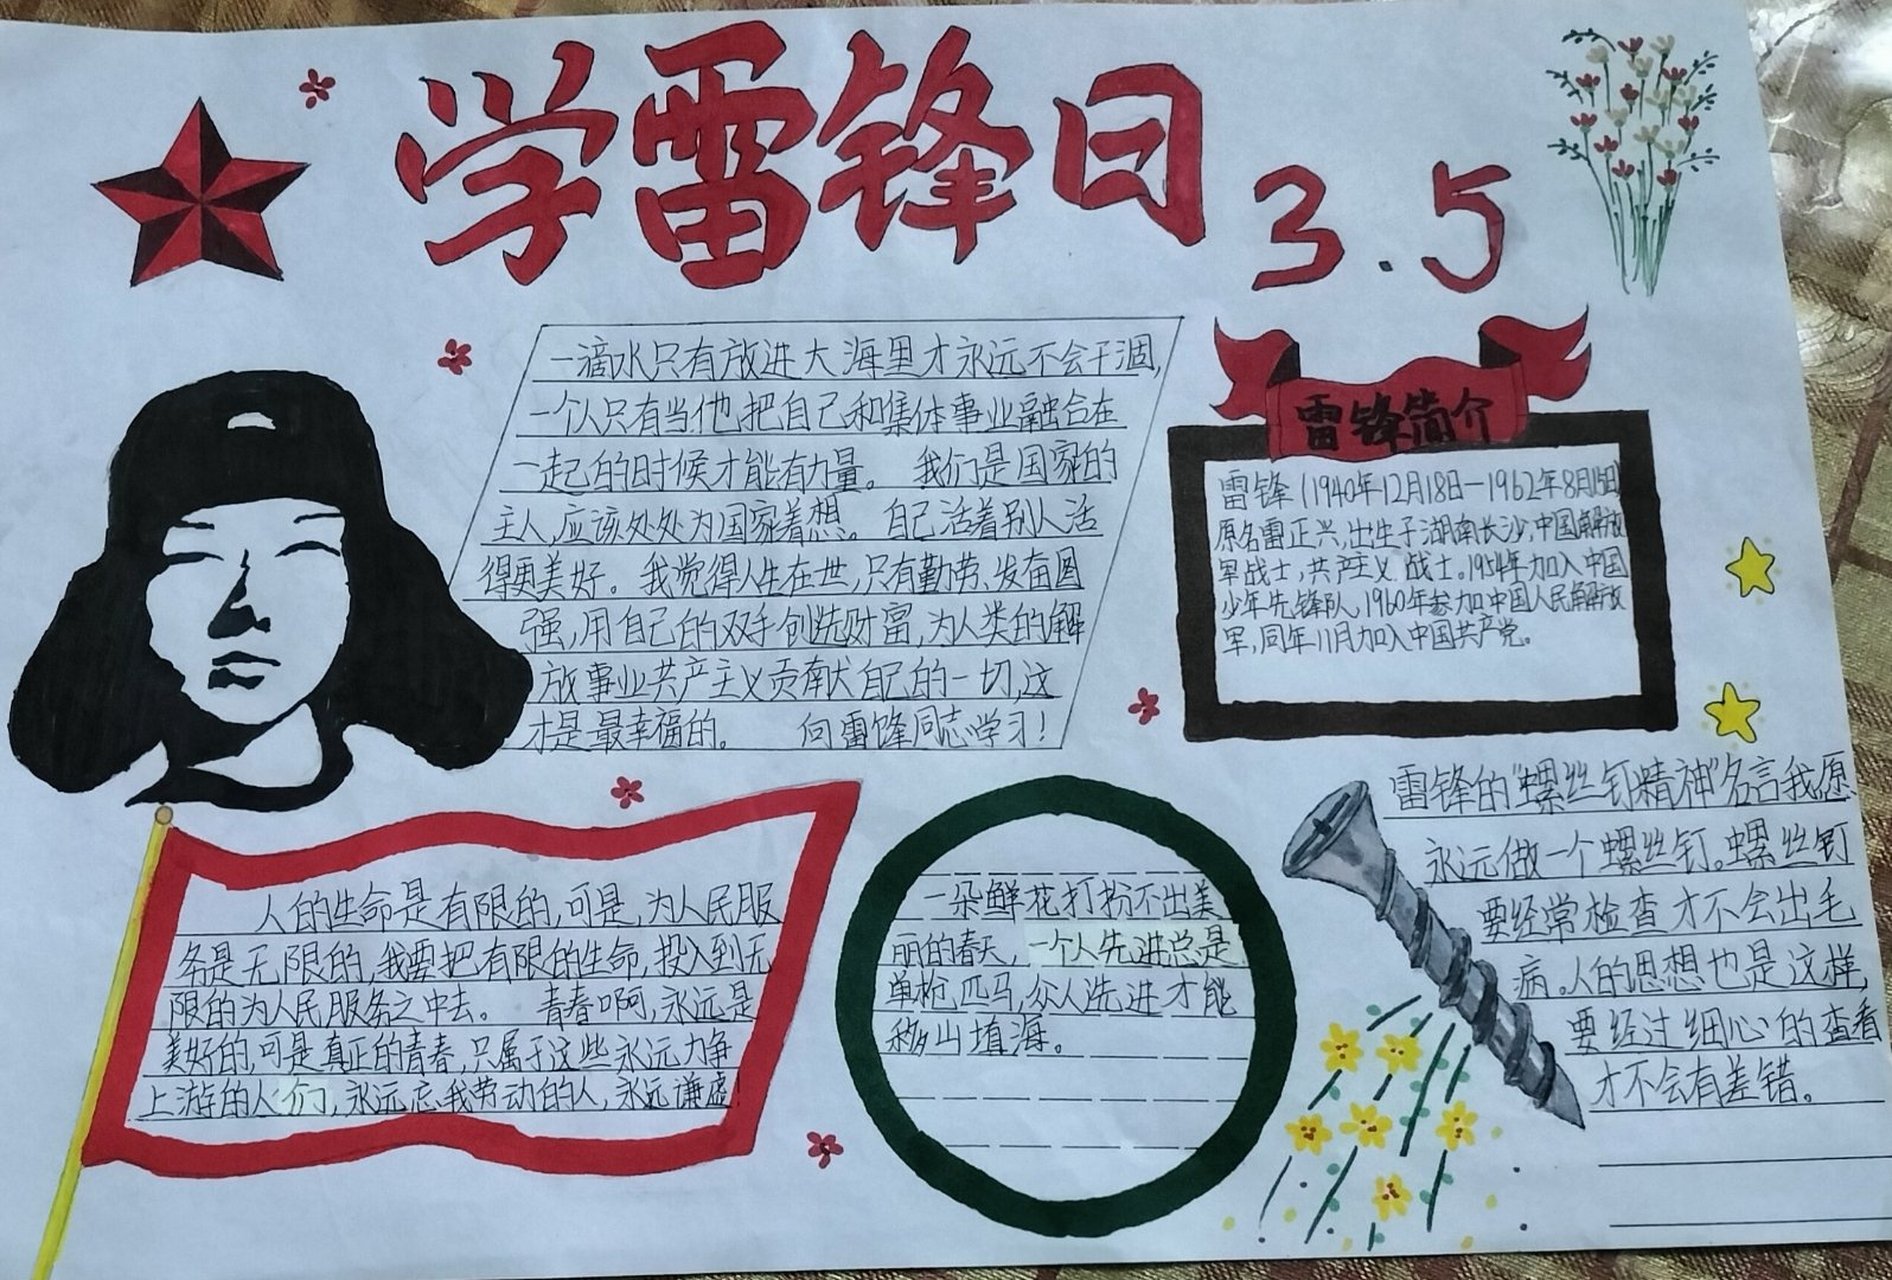 学雷锋日
3.5
一滴水只有放进大海里才永远不会干涸,
一个人只有当他把自己和集体事业融合在
一起的时候才能有力量。 我们是国家的
主人,应该处处为国家着想。 自己活着别人活
得更美好。 我觉得人生在世,只有勤劳、发奋图
强,用自己的双手创造财富,为人类的解
放事业共产主义贡献自己的一切,这
才是最幸福的。 向雷锋同志学习!
雷锋简介
雷锋(1940年12月18日—1962年8月15日)
原名雷正兴,出生于湖南长沙,中国解放
军战士,共产主义战士。1954年加入中国
少年先锋队,1960年参加中国人民解放
军,同年11月加入中国共产党。
人的生命是有限的,可是,为人民服
务是无限的,我要把有限的生命,投入到无
限的为人民服务之中去。 青春啊,永远是
美好的,可是真正的青春,只属于这些永远力争
上游的人们,永远忘我劳动的人,永远谦虚!
一朵鲜花打扮不出美
丽的春天,一个人先进总是
单枪匹马,众人先进才能
移山填海。
雷锋的"螺丝钉精神"名言我愿
永远做一个螺丝钉。螺丝钉
要经常检查才不会出毛
病。人的思想也是这样,
要经过细心的查看
才不会有差错。